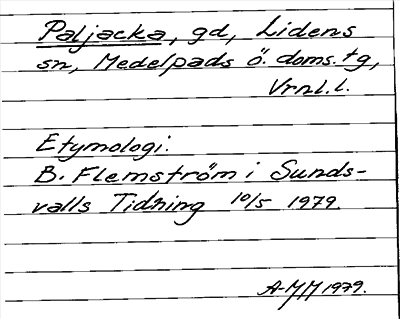 Paljacka, gd, Lidens
sn, Medelpads ö. doms. tg,
Vrnl. l.
Etymologi:
B. Flemström i Sunds-
valls Tidning 10/5 1979.
A-MM 1979.